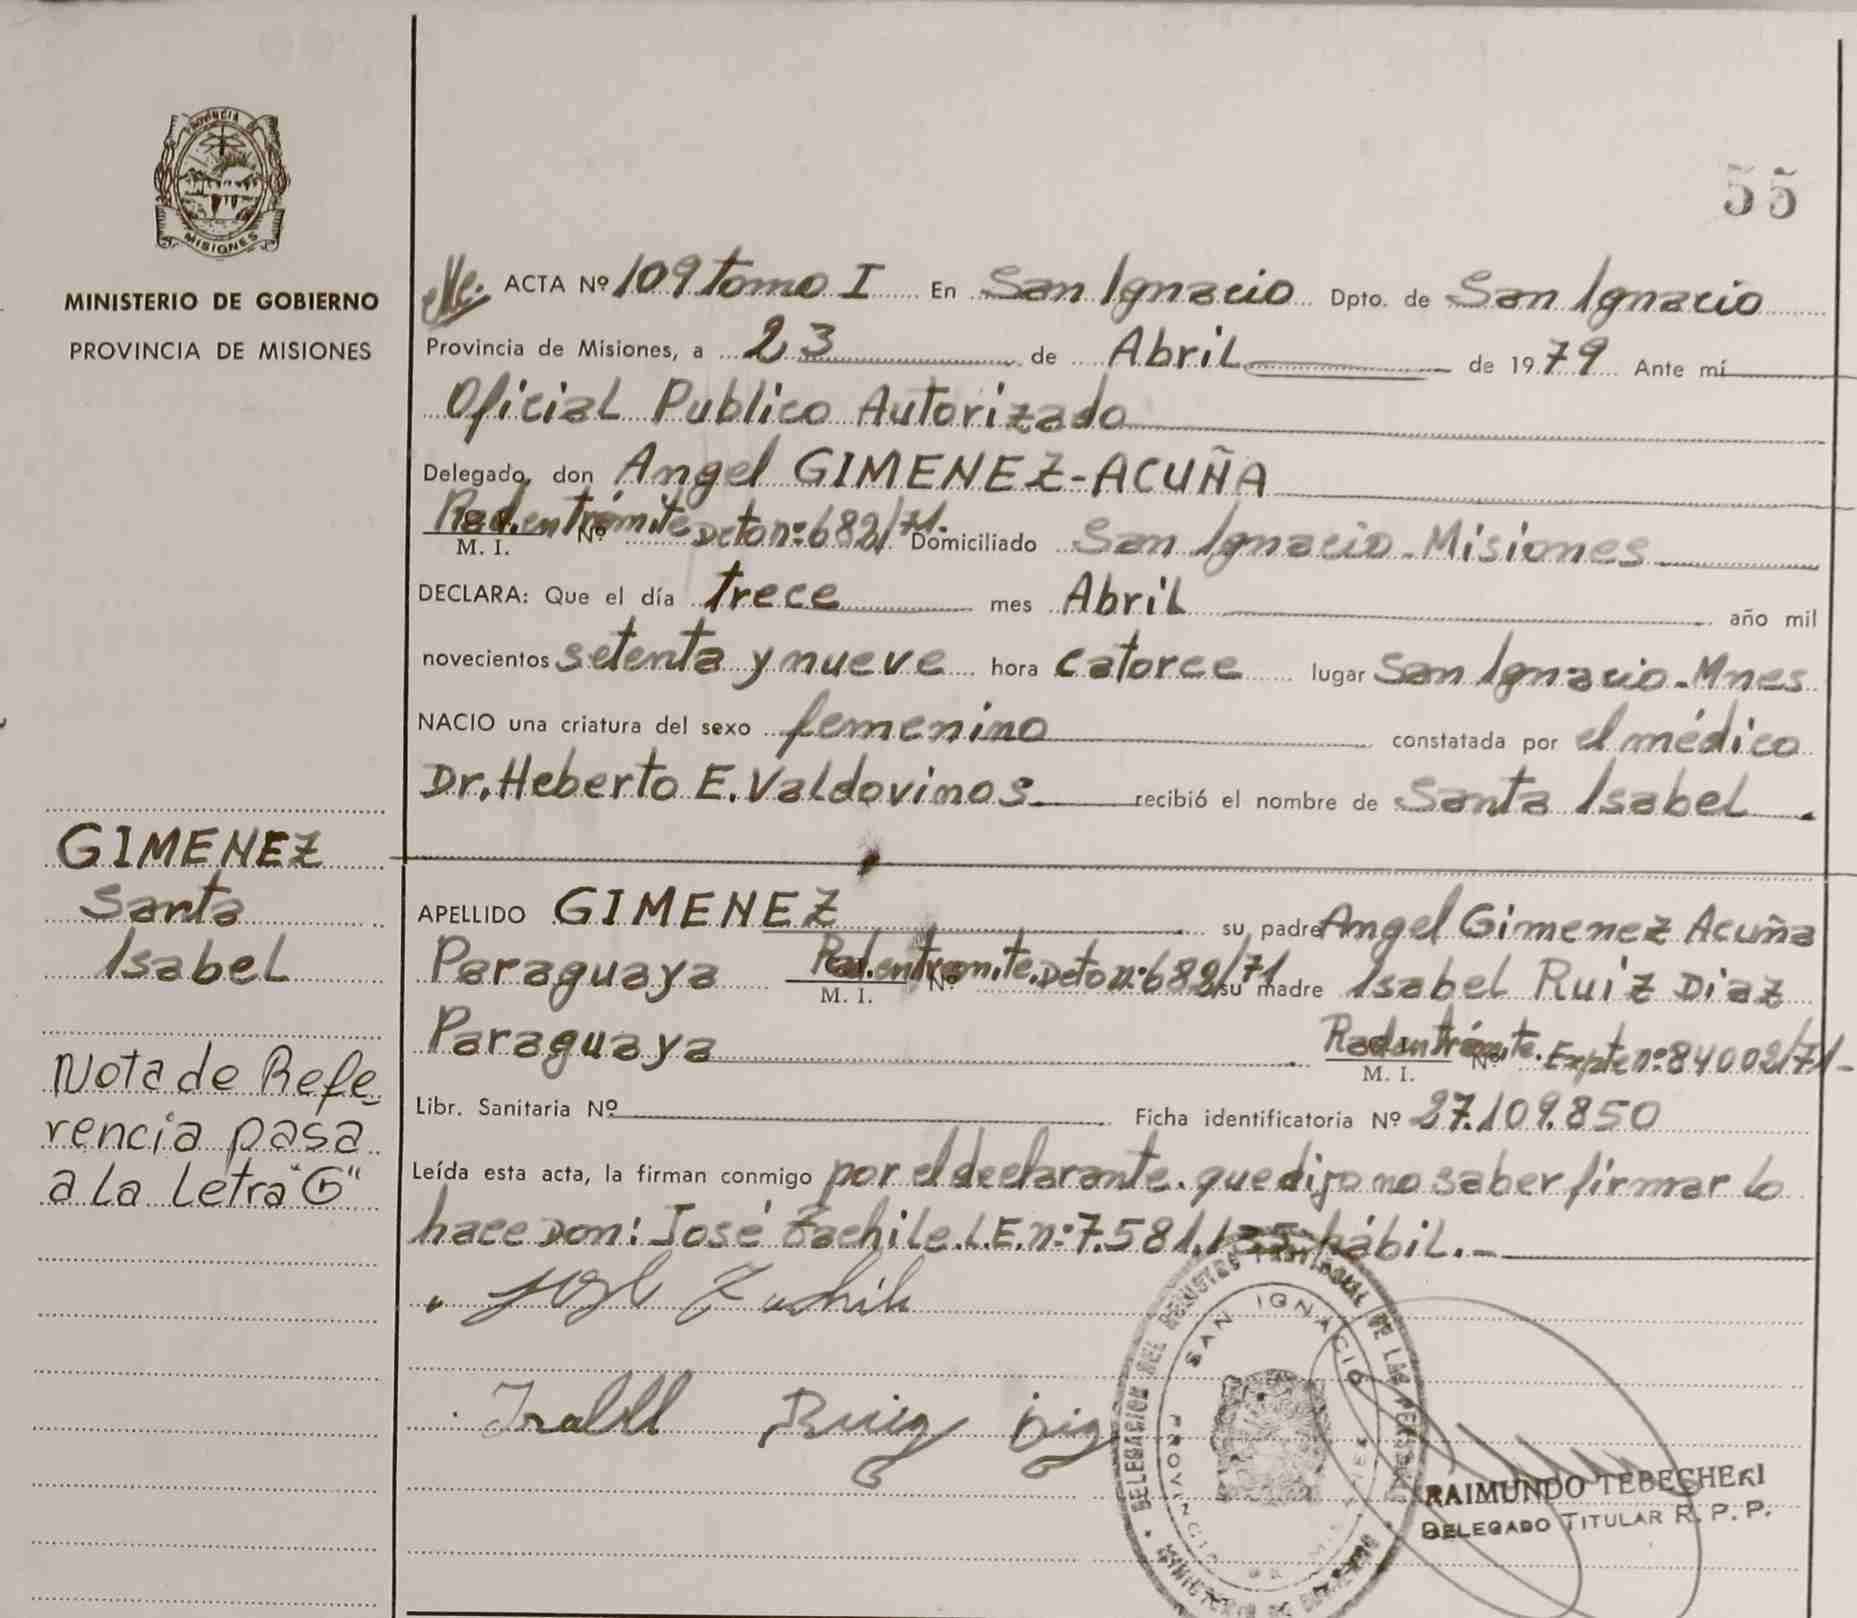 PROVINCIA DE
MISIONES
MINISTERIO DE GOBIERNO
PROVINCIA DE MISIONES
GIMENEZ
Santa
Isabel
Nota de Refe-
rencia pasa
a la letra "G"
55
ACTA Nº 109 tomo I En San Ignacio Dpto. de San Ignacio
Provincia de Misiones, a 23 de Abril de 1979 Ante mí
Oficial Publico Autorizado
Delegado, don Angel GIMENEZ-ACUÑA
Rad. en trámite Deto nº 682/71. M. I. Nº Domiciliado San Ignacio - Misiones
DECLARA: Que el día trece mes Abril año mil
novecientos setenta y nueve hora catorce lugar San Ignacio - Mnes
NACIO una criatura del sexo femenino constatada por el médico
Dr. Heberto E. Valdovinos recibió el nombre de Santa Isabel.
APELLIDO GIMENEZ su padre Angel Gimenez Acuña
Paraguaya M. I. Nº Rad. en trámite. Deto nº 682/71 su madre Isabel Ruiz Diaz
Paraguaya M. I. Nº Rad en trámite. Expte nº 84002/71-
Libr. Sanitaria Nº Ficha identificatoria Nº 27.109.850
Leída esta acta, la firman conmigo por el declarante. que dijo no saber firmar lo
hace Don: José Zachile. L.E. nº 7.581.135 hábil.-
José Zachile
Isabel Ruiz Diaz
DELEGACION DEL REGISTRO PROVINCIAL DE LAS PERSONAS
SAN IGNACIO
PROVINCIA DE MISIONES
MINISTERIO DE GOBIERNO
RAIMUNDO TEBECHERI
DELEGADO TITULAR R. P. P.